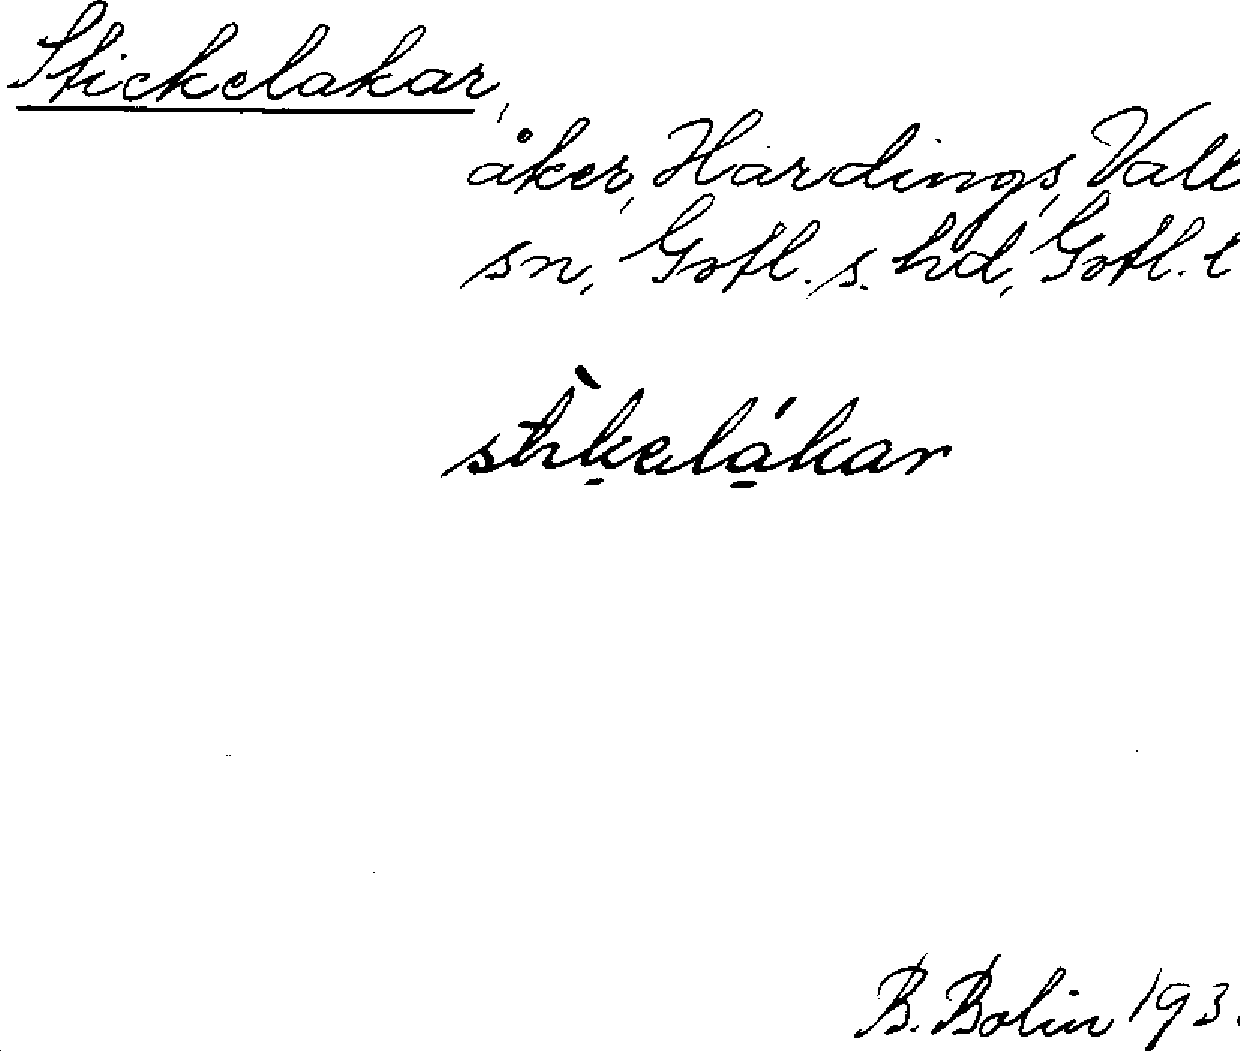 Stickelakar,
åker, Hardings, Vall
sn, Gotl. s. hd, Gotl. l
B. Bolin 193